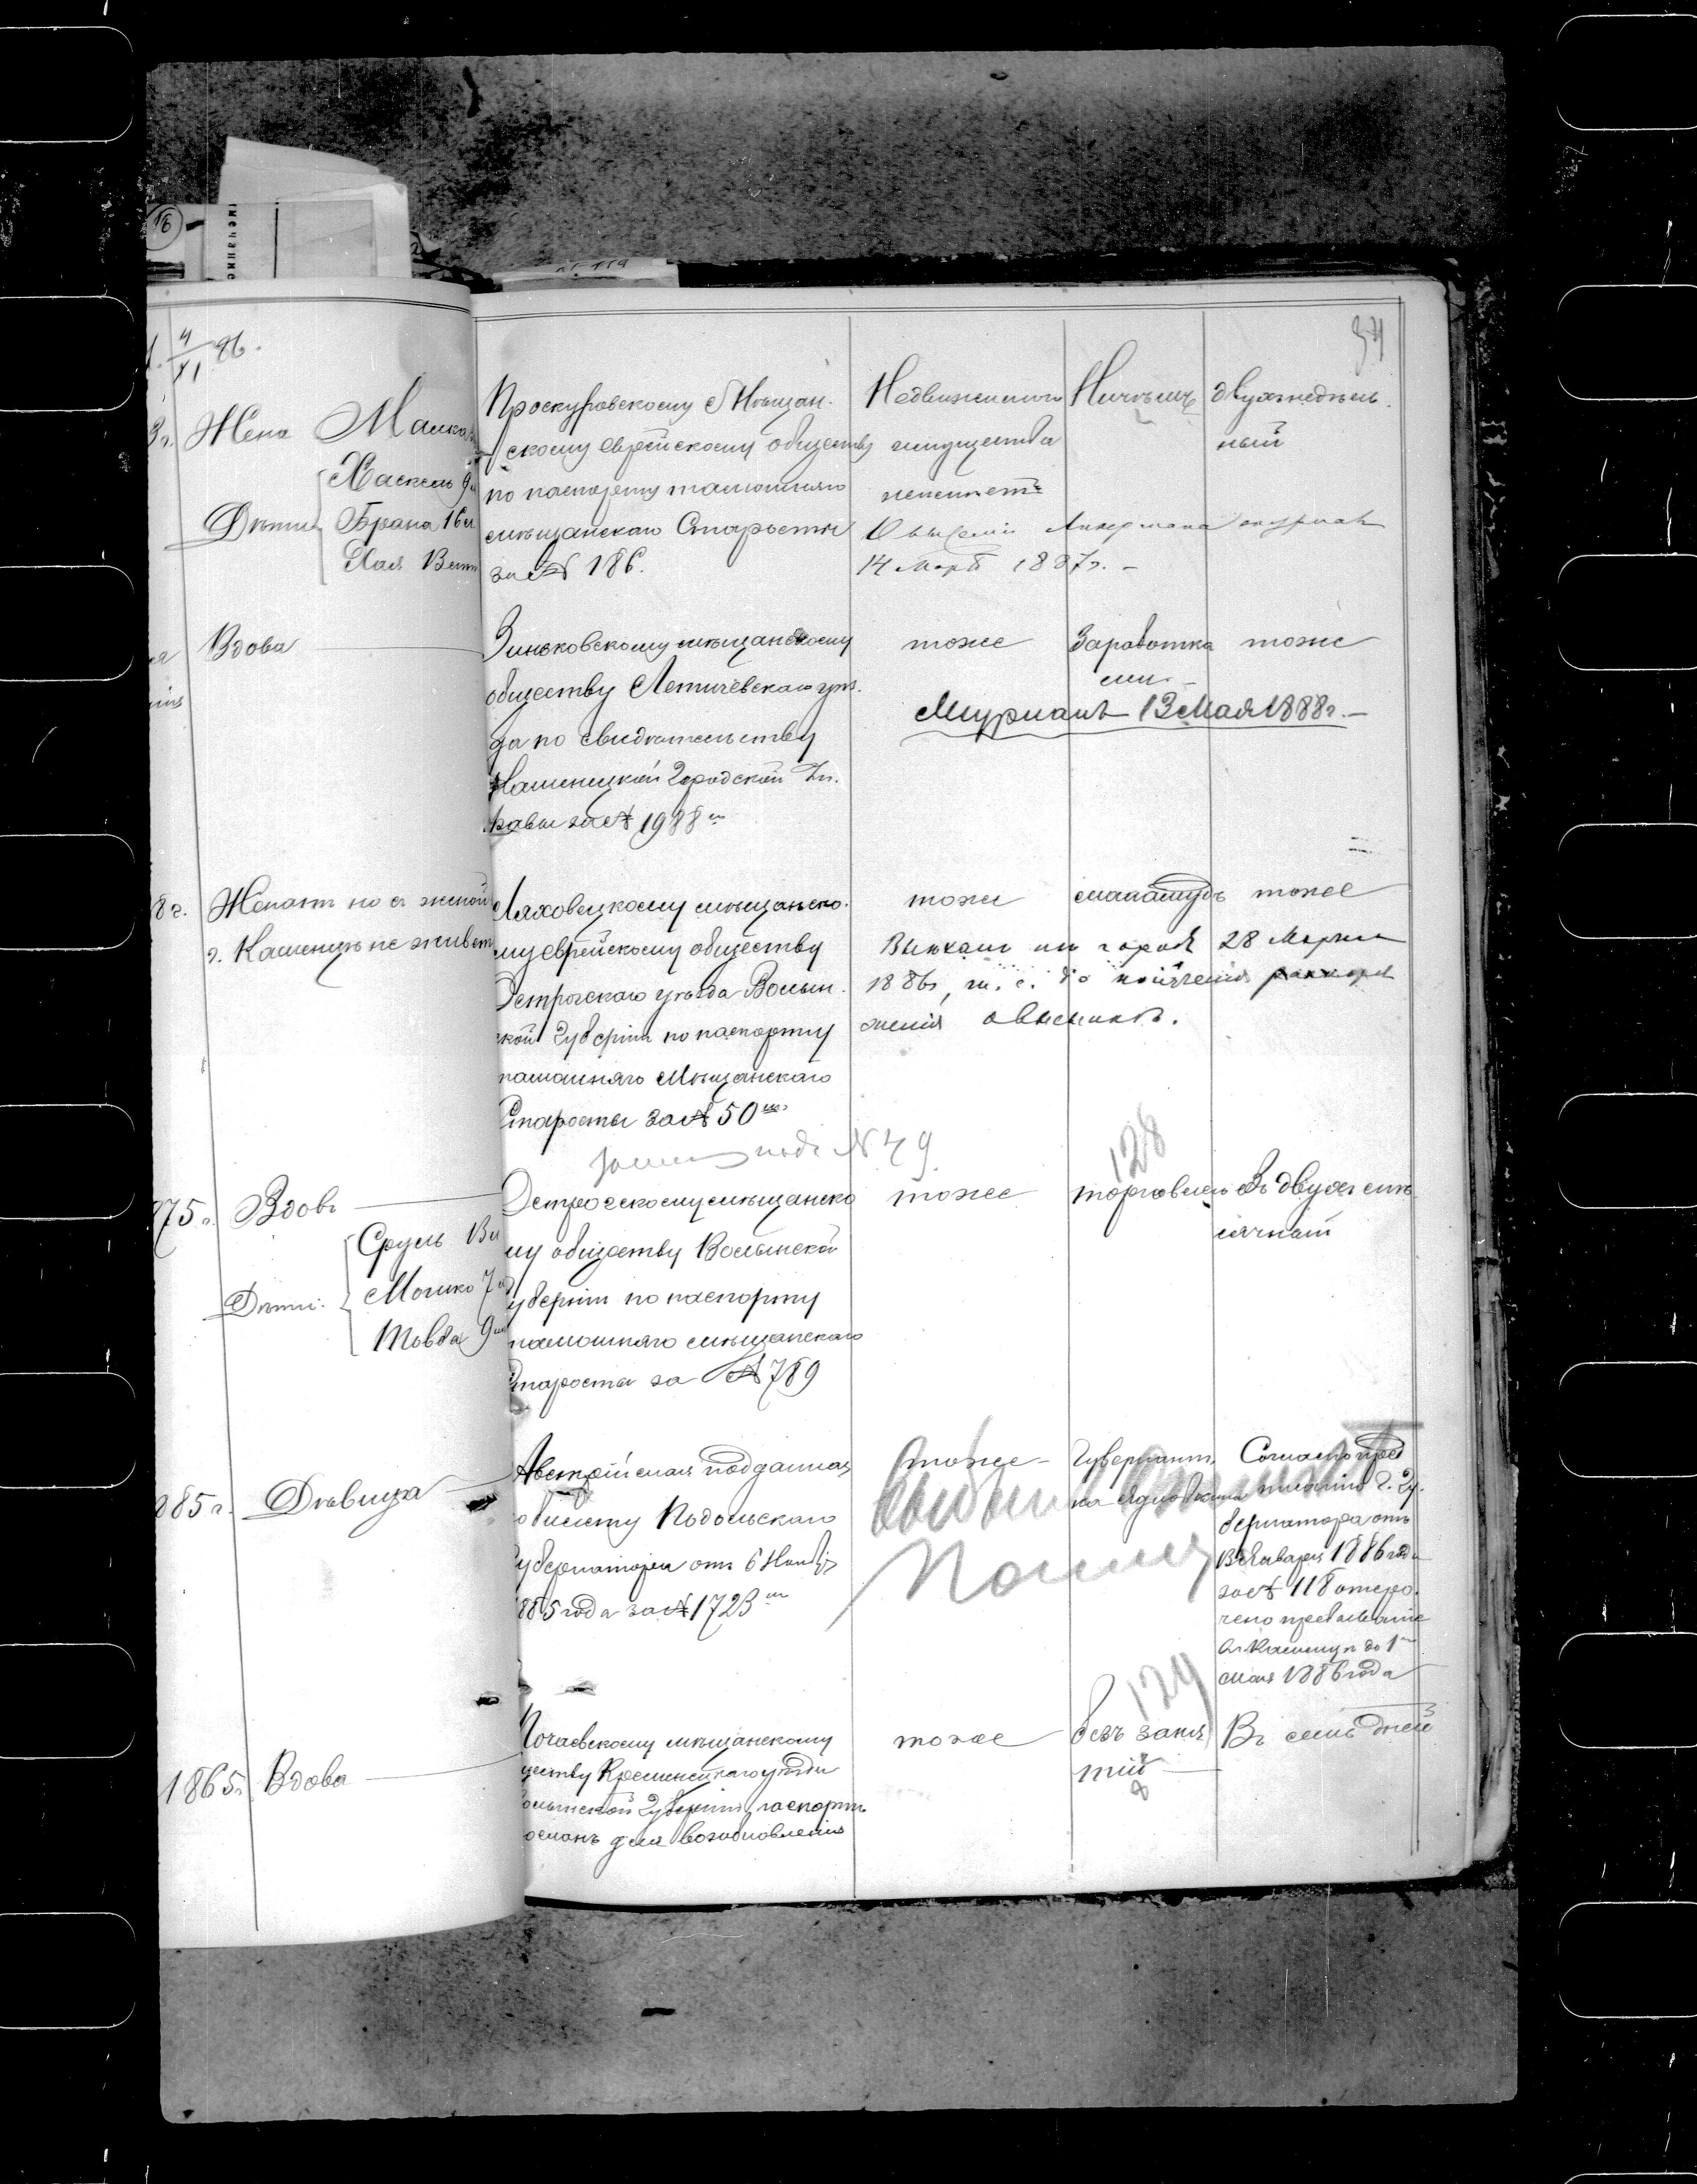 16
мечание
34
4/XI 86.
3 г. Жена Малка
Дѣти Хаскель 9 л
Брана 16 л
Хая 13 лет
Проскуровскому Мѣщан-
скому еврейскому обществу
по паспорту тамошняго
мѣщанскаго Старосты
за № 186.
Недвижимаго
имущества
неимеетъ
Ничемъ
двухнедѣль-
ный
14 Март 1887 г. -
Вдова
Зиньковскому мѣщанскому
обществу Летичевскаго уѣз-
да по свидѣтельству
Каменецкой Городской Уп-
равы за № 1988
тоже
Заработка
ми -
тоже
Журналъ 13 Мая 1888 г. -
8 г. Женатъ но съ женой
г. Каменцѣ не живетъ
Ляховецкому мѣщанско-
му еврейскому обществу
Острогскаго уѣзда Волын-
ской Губерніи по паспорту
тамошняго Мѣщанскаго
Старосты за № 50
тоже
тоже
Выѣхалъ из города 28 Марта
1886 г, т. е. до полученія распоря
женія о высылкѣ.
№ 79
128
75 г. Вдовъ
Дѣти: Сруль 13 л
Мошко 7 л
Товба 9
Острогскому мѣщанско
му обществу Волынской
губерніи по паспорту
тамошняго мѣщанскаго
Старосты за № 789
тоже
торговлею
Въ двухъ мѣ
сячный
885 г. Дѣвица
Австрійская подданная
по билету Подольскаго
Губернатора отъ 6 Нояб
1885 года за № 1723
тоже -
Гувернант
ка
Согласно пред
писанію Г. Гу-
бернатора отъ
13 Января 1886 года
за № 118 отсро-
чено пребываніе
въ Каменцѣ до 1
мая 1886 года
129
1865 г. Вдова
Почаевскому мѣщанскому
обществу Кременецкаго уѣзда
Волынской Губерніи, паспортъ
посланъ для возобновленія
тоже
безъ заня
тій
Въ семь дней